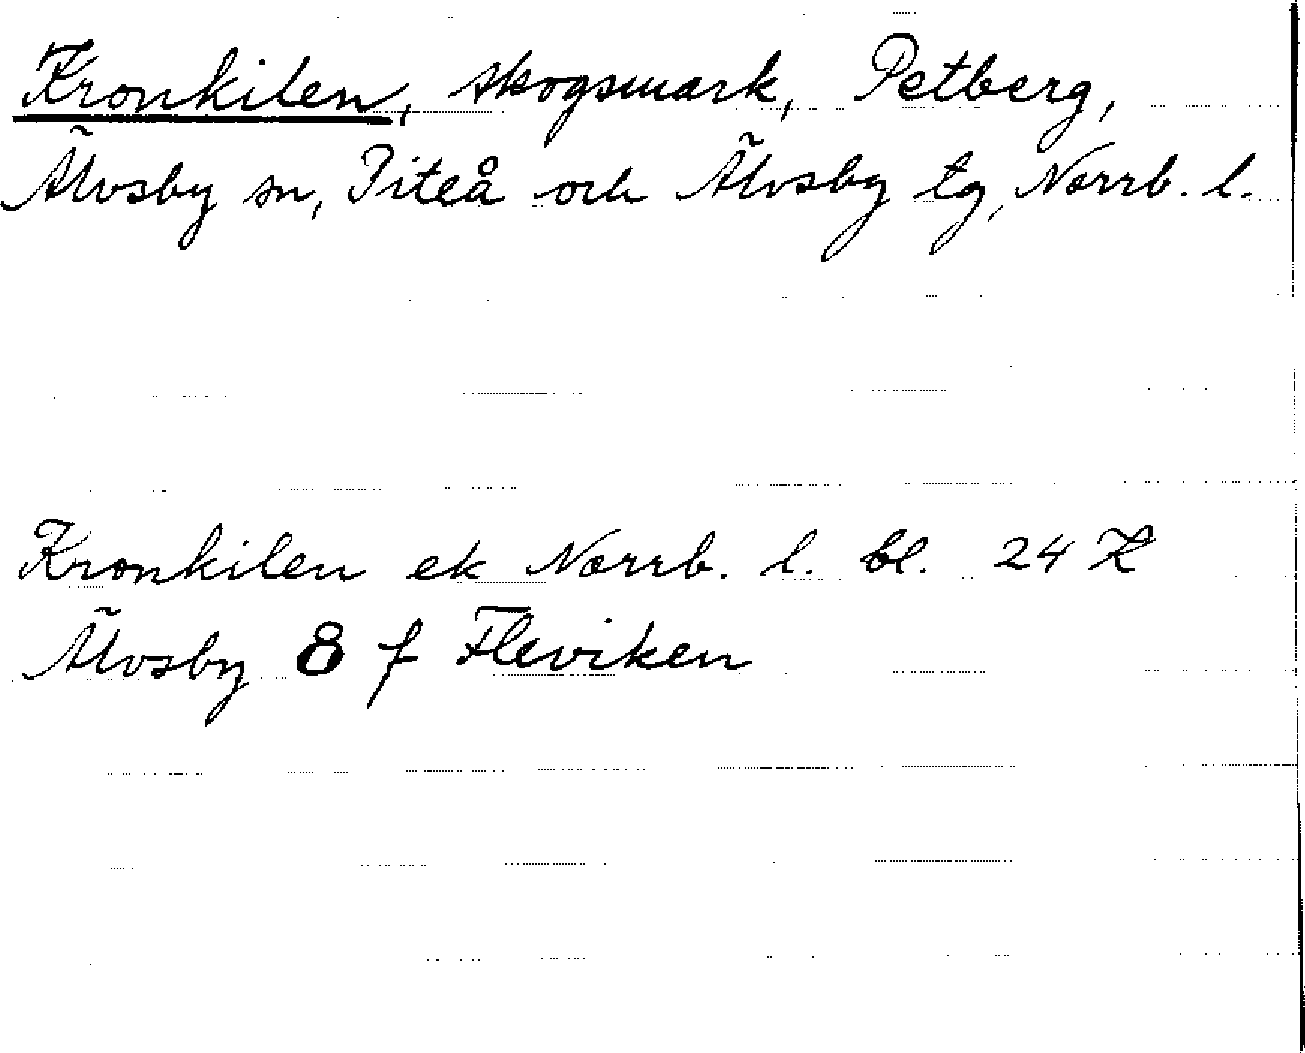 Kronkilen, skogsmark, Petberg,
Älvsby sn, Piteå och Älvsby tg, Norrb. l.
Kronkilen ek Norrb. l. bl. 24 K
Älvsby 8 f Fleviken